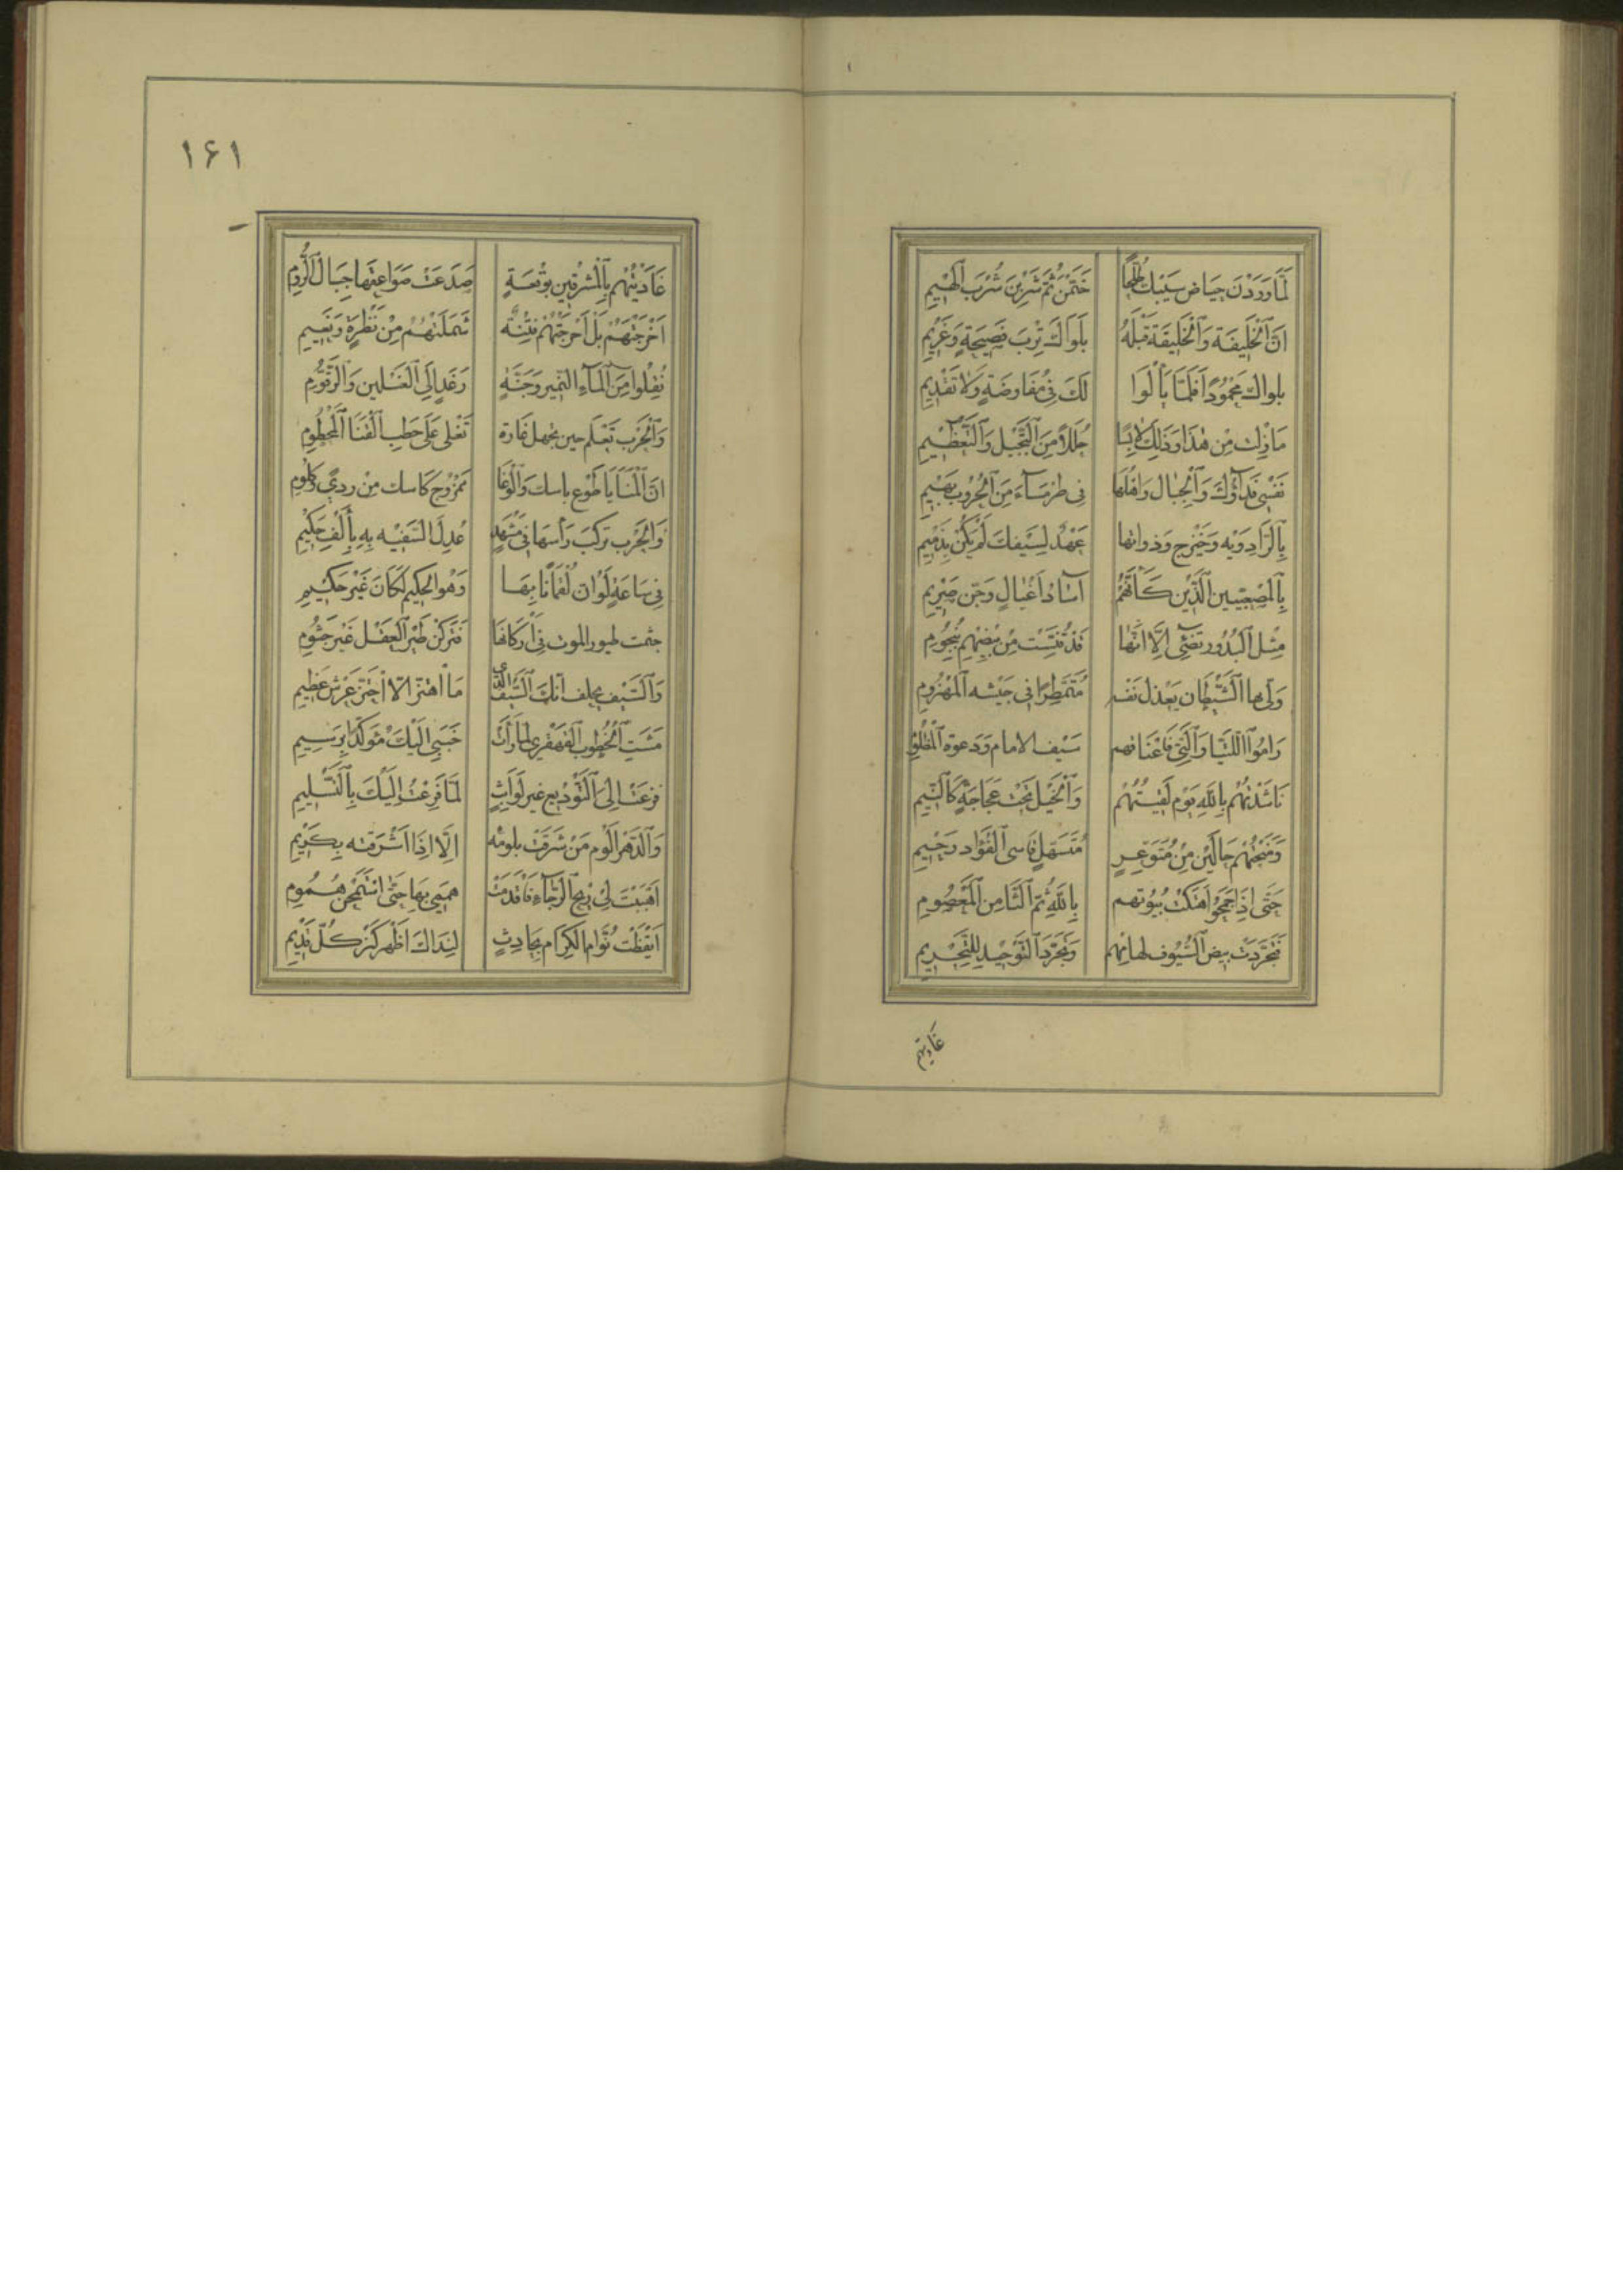 لَمَّا وَرَدْنَ حِيَاضَ سَيْبِكَ طُلَّحًا خَيَّمْنَ ثُمَّ شَرِبْنَ شُرْبَ الْهِيْمِ
اِنَّ الْخَلِيفَة وَالْخَلِيفَةَ قَبْلَهُ تِرْبَ نَصِيحَةٍ وَعَزِيْمِ
بلواك مَحْمُودًا فَلَمَّا يَأْلُوَا لَكَ فِي مُفَاوَضَةٍ وَلَا تَقْدِيْمِ
مَا زِلْتَ مِنْ هٰذَا وَذٰلِكَ لَابِسًا حُلَلًا مِنَ التَّبْجِيْل وَالتَّعْظِيْمِ
نَفْسِي فِدَاؤُكَ وَالْجِبَال وَاهْلُهَا فِي طِرْمِسَاءَ مِنَ الْحُرُوْبِ بَهِيْمِ
بِالزَّادَوِيْه وَخَيْزَج وَذَوَاتِهَا عَهْدٌ لِسَيْفِكَ لَمْ يَكُنْ بِذَمِيْمِ
بِالْمُصْعَبِيّين الَّذِيْنَ كَأَنَّهُمْ آسَادُ أَغْيَالٍ وَجِنّ صَرِيْمِ
مِثْل الْبُدُوْر تُضِيْءُ اِلَّا انَّهَا قَدْ قُلْنِسَتْ مِنْ بَيْضِهِمْ بِنُجُوْمِ
وَلّى بها الشَّيْطَان يَعْذل نَفْسه مُتَمَطِّرًا فِي جَيْشه الْمَهْزُوْمِ
وَرَامُوْا اللَّتَيَّا وَالَّتِي فَاعْتَاقهم سَيْف الامام وَدعوة الْمَظْلُوْمِ
نَاشَدْتَهُمْ بِاللهِ يَوْم لَقِيْتَهُمْ وَالْخَيْل تَحْتَ عَجَاجَةٍ كَالنِّيْمِ
وَمَنَحْتَهُمْ حَالَيْنِ مِنْ مُتَوَعِّرٍ مُتَسَهِّلٍ قَاسِي الْفُؤَاد رَحِيْمِ
حَتَّى اِذَا جَمَحُوا هَتَكْتَ بُيُوْتهم بِاللهِ ثُمَّ الثَّامِن الْمَعْصُوْمِ
فَتَجَرَّدَتْ بيض السُّيُوْف لهامهم وَتَجَرَّدَ التَّوْحِيْد لِلتَّجْرِيْمِ
غاديتهم
١٦١
غَادَيْتَهُمْ بِالْمَشْرِقَيْنِ بِوَقْعَةٍ صَدَعَتْ صَوَاعِقهَا جِبَال الرُّوْمِ
أَخْرَجْتَهُمْ بَلْ أَخْرَجَتْهُمْ فِتْنَةٌ سَلَبَتْهُمْ مِنْ نَضْرَةٍ وَنَعِيْمِ
نُقِلُوا مِنَ الْمَاءِ النَّمِيْر وَجَنَّةٍ رَغَدٍ اِلَى الْغِسْلِين وَالزَّقُّوْمِ
وَالْحَرْب تَعْلَم حِين تجهل غَارة تَغْلِي عَلَى حَطَبِ الْقَنَا الْمَحْطُوْمِ
انَّ الْمَنَايَا طَوْع باسك وَالْوَغَا مَمْزُوْج كَاسك مِنْ رَدًى وَكُلُوْمِ
وَالْحَرْب تَرْكَب رَأْسهَا فِي مَشْهَدٍ عُدِلَ السَّفِيْه بِهِ بِأَلْفِ حَكِيْمِ
فِي سَاعَةٍ لَوْ ان لُقْمَانًا بِهَا وَهْوَ الْحَكِيم لَكَانَ غَيْرَ حَكِيْمِ
جثمت طيور الموت فِي أَوْكَارهَا فَتَرَكْنَ طَيْر الْعَقْل غَيْرَ جُثُوْمِ
وَالسَّيْف يحلف انَّكَ السَّيْف الَّذِي مَا اهْتَزَّ الّا اجْتَثَّ عَرْش عَظِيْمِ
مَشَتِ الْخُطُوْب الْقَهْقَرى لَمَّا رَأَتْ خَبَبِي اِلَيْكَ مُؤَكَّدًا بِرَسِيْمِ
فزعَتْ اِلَى التَّوْدِيْع غير لَوَابِثٍ لَمَّا فَزِعْتُ اِلَيْكَ بِالتَّسْلِيْمِ
وَالدَّهْر الْوَم مَنْ شَرَقْتَ بلومه اِلَّا اِذَا اَشْرَقْته بِكَرِيْمِ
أَهْبَبْتَ لِي رِيْحَ الرَّجَاءِ فَاقْدَمَتْ هِمَمِي بِهَا حَتّى اسْتَبَحْنَ هُمُوْمِي
أَيْقَظْتَ نُوَّام الْكِرَام بِحَادِثٍ لِنَدَاكَ اَظْهَرَ كَنْز كُلّ قَدِيْمِ